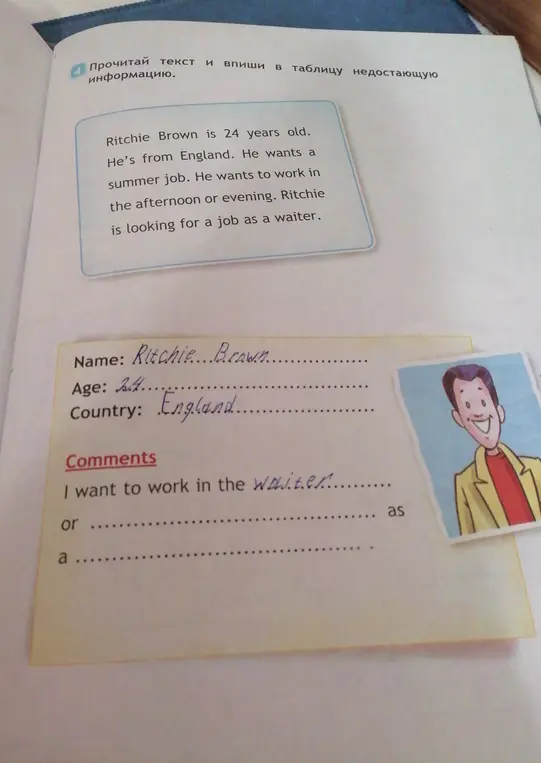 4 Прочитай текст и впиши в таблицу недостающую
информацию.
Ritchie Brown is 24 years old.
He's from England. He wants a
summer job. He wants to work in
the afternoon or evening. Ritchie
is looking for a job as a waiter.
Name: Ritchie Brown
Age: 24
Country: England
Comments
I want to work in the waiter
or .......... as
a .......... .